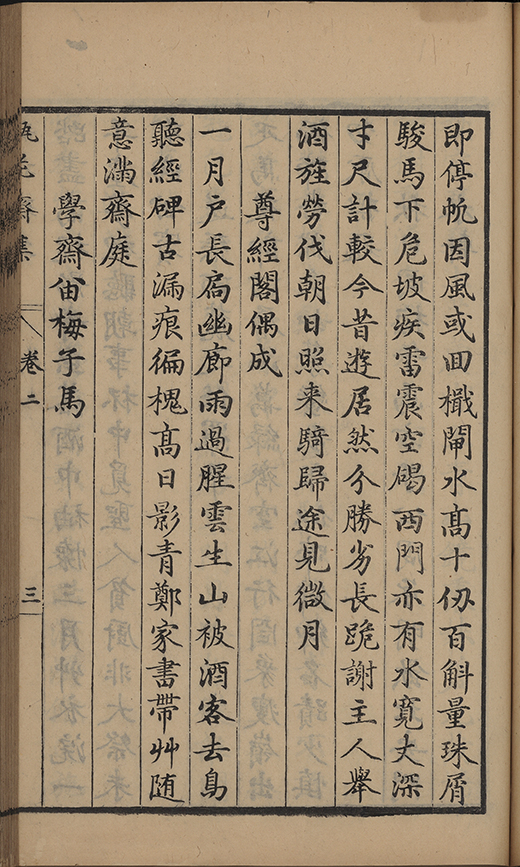 即停帆因風或回檝閘水髙十仭百斛量珠屑
駿馬下危坡疾雷震空碣西門亦有水寛丈深
才尺計較今昔遊居然分勝劣長跪謝主人舉
酒旌勞伐朝日照来騎歸途見微月
尊經閣偶成
一月户長扄幽廊雨過腥雲生山被酒客去鳥
聽經碑古漏痕徧槐髙日影青鄭家書帶艸随
意滿齋庭
學齋畄梅子馬
瓶花齋集 卷二 三